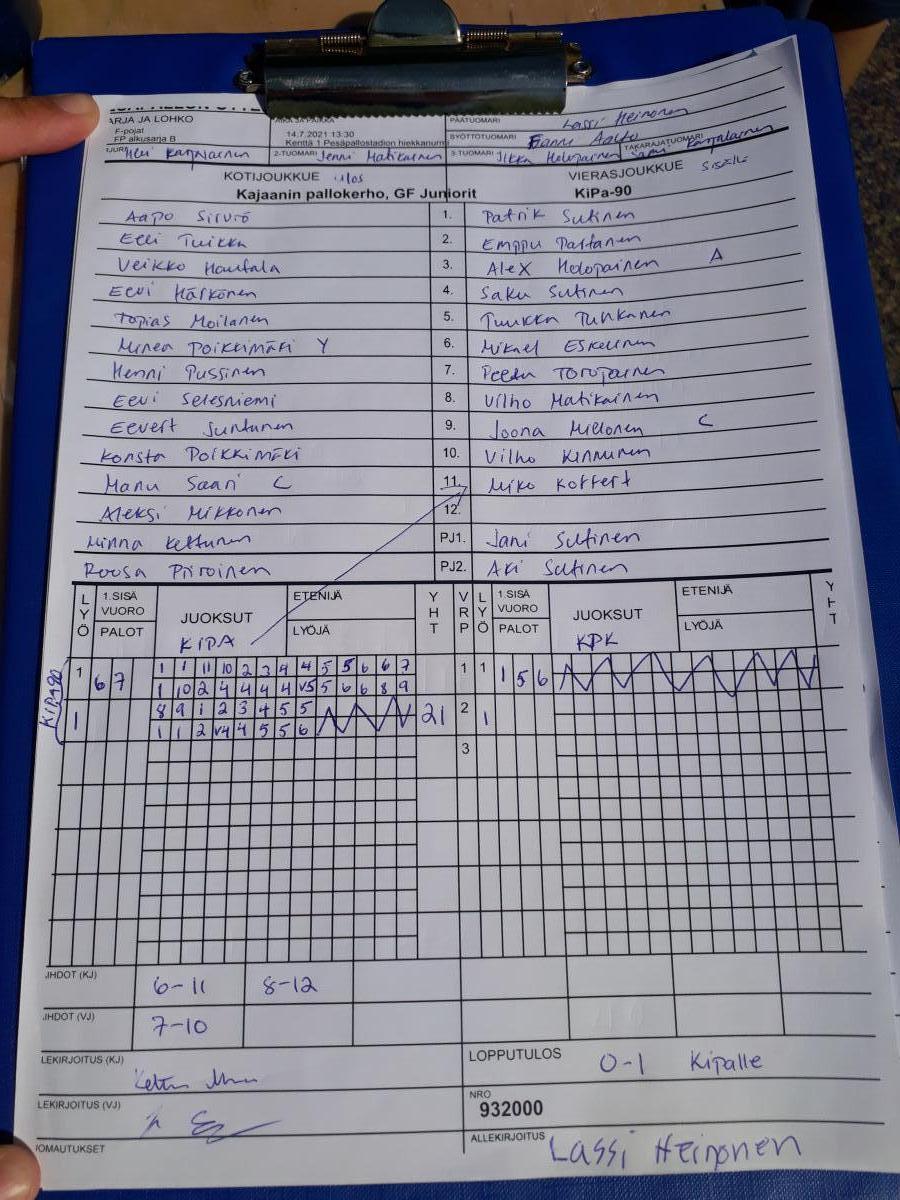 ARJA JA LOHKO
F-pojat
FP alkusarja B
14.7.2021 13:30
Kenttä 1 Pesäpallostadion hiekkanurmi
PÄÄTUOMARI Lassi Heinonen
SYÖTTÖTUOMARI Hannu Aalto TAKARAJATUOMARI
2-TUOMARI Jenni Matikainen 3-TUOMARI Ilkka Holopainen
KOTIJOUKKUE ulos VIERASJOUKKUE sisälle
Kajaanin pallokerho, GF Juniorit KiPa-90
Aapo Sirviö 1. Patrik Sutinen
Elli Tuikka 2. Emppu Partanen
Veikko Hautala 3. Alex Holopainen A
Eevi Härkönen 4. Saku Sutinen
Topias Moilanen 5. Tuukka Tuhkanen
Minea Poikkimäki Y 6. Mikael Eskelinen
Henni Pussinen 7. Peetu Toropainen
Eevi Selesniemi 8. Vilho Matikainen
Eevert Juntunen 9. Joona Mellonen C
Konsta Poikkimäki 10. Vilho Kinnunen
Manu Saari C 11. Miko Koffert
Aleksi Mikkonen 12.
Minna Kettunen PJ1. Jani Sutinen
Roosa Piiroinen PJ2. Aki Sutinen
LYÖ 1.SISÄ VUORO PALOT JUOKSUT KIPA ETENIJÄ LYÖJÄ YHT VRP LYÖ 1.SISÄ VUORO PALOT JUOKSUT KPK ETENIJÄ LYÖJÄ YHT
KiPA90
1 6 7 1 1 11 10 2 3 4 4 5 5 6 6 7 1 1 1 5 6
1 10 2 4 4 4 4 v5 5 6 6 8 9
1 8 9 1 2 3 4 5 5 21 2 1
1 1 2 v4 4 5 5 6
3
JHDOT (KJ) 6-11 8-12
JHDOT (VJ) 7-10
LEKIRJOITUS (KJ)
LOPPUTULOS 0-1 Kipalle
LEKIRJOITUS (VJ)
NRO
932000
OMAUTUKSET
ALLEKIRJOITUS Lassi Heinonen